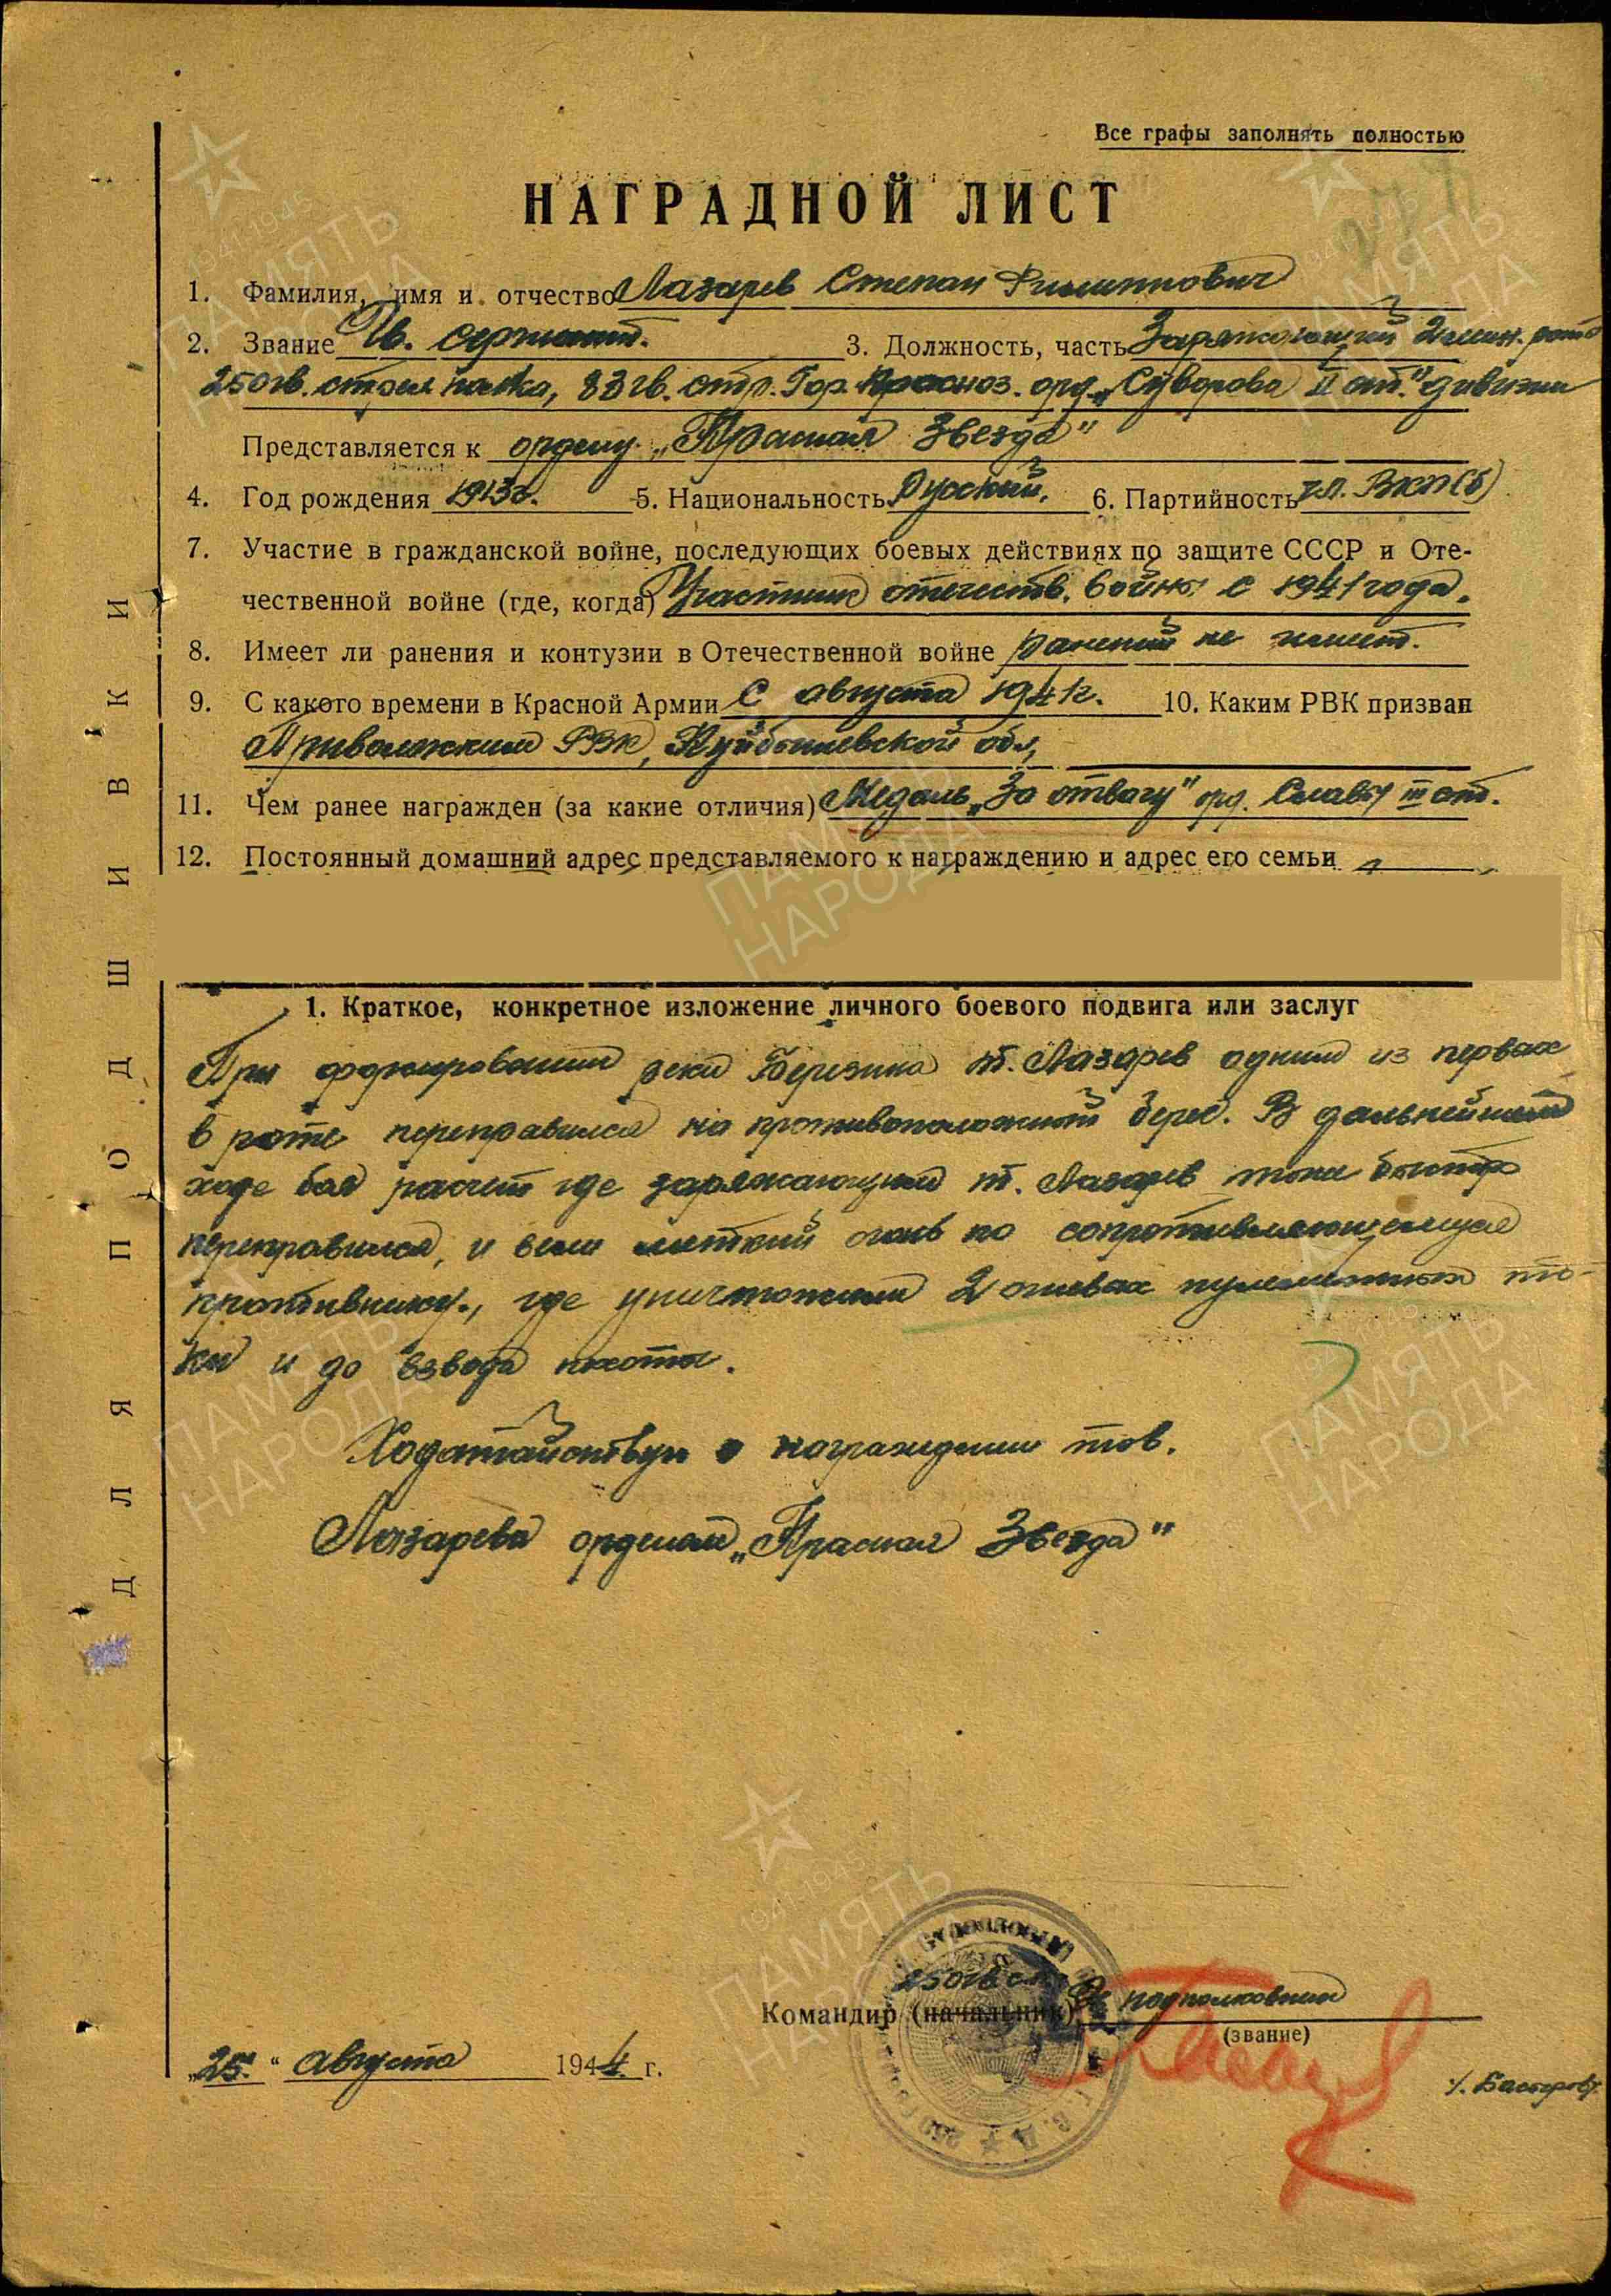 Все графы заполнять полностью
НАГРАДНОЙ ЛИСТ
1. Фамилия, имя и отчество Лазарев Степан Филиппович
2. Звание Гв. сержант. 3. Должность, часть Заряжающий 2 мин. роты
250 гв. стрел. полка, 83 гв. стр. Гор. Красноз. орд. „Суворова II ст." дивизии
Представляется к ордену „Красная Звезда"
4. Год рождения 1913г. 5. Национальность Русский. 6. Партийность чл. ВКП(б)
7. Участие в гражданской войне, последующих боевых действиях по защите СССР и Оте-
чественной войне (где, когда) Участник отечеств. войны с 1941 года.
8. Имеет ли ранения и контузии в Отечественной войне ранений не имеет.
9. С какого времени в Красной Армии С августа 1941г. 10. Каким РВК призван
Приволжским РВК, Куйбышевской обл,
11. Чем ранее награжден (за какие отличия) Медаль „За отвагу" орд. Славы III ст.
12. Постоянный домашний адрес представляемого к награждению и адрес его семьи
1. Краткое, конкретное изложение личного боевого подвига или заслуг
При форсировании реки Березина т. Лазарев одним из первых
в роте переправился на противоположный берег. В дальнейшем
ходе боя расчет где заряжающим т. Лазарев тоже быстро
переправился, и вели меткий огонь по сопротивляющемуся
противнику., где уничтожили 2 огневых пулеметных то-
ки и до взвода пехоты.
Ходатайствую о награждении тов.
Лазарева орденом „Красная Звезда"
250 гв сп Гв. подполковник
Командир (начальник)
(звание)
„25" августа 1944 г.
ДЛЯ ПОДШИВКИ
1941-1945
ПАМЯТЬ
НАРОДА